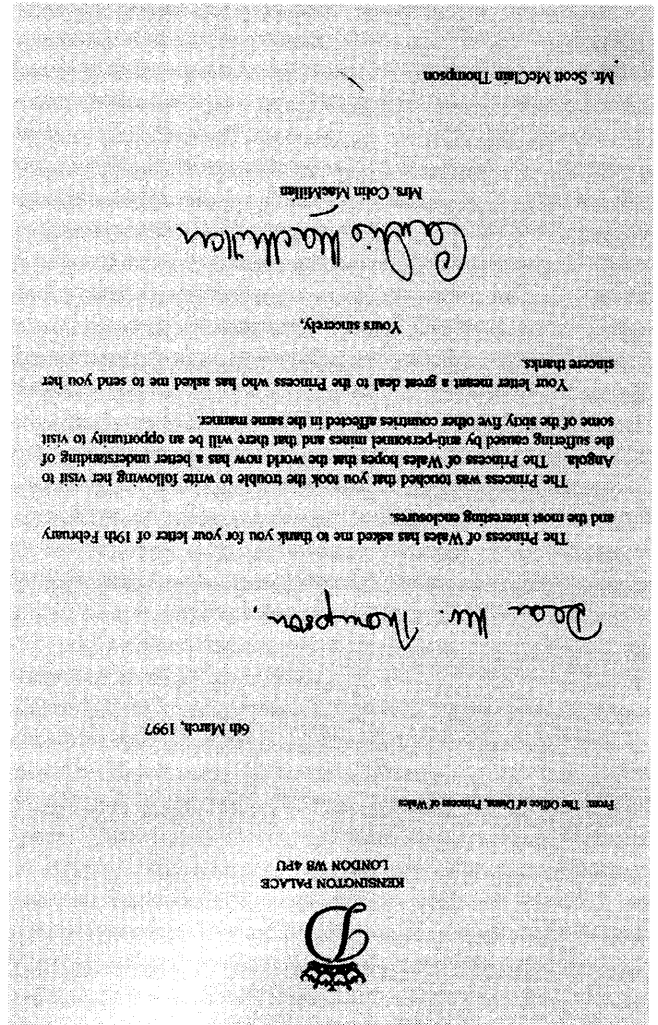 D
KENSINGTON PALACE
LONDON W8 4PU
From: The Office of Diana, Princess of Wales
6th March, 1997
Dear Mr. Thompson,
The Princess of Wales has asked me to thank you for your letter of 19th February
and the most interesting enclosures.
The Princess was touched that you took the trouble to write following her visit to
Angola. The Princess of Wales hopes that the world now has a better understanding of
the suffering caused by anti-personnel mines and that there will be an opportunity to visit
some of the sixty five other countries affected in the same manner.
Your letter meant a great deal to the Princess who has asked me to send you her
sincere thanks.
Yours sincerely,
Mrs. Colin MacMillan
Mr. Scott McClain Thompson